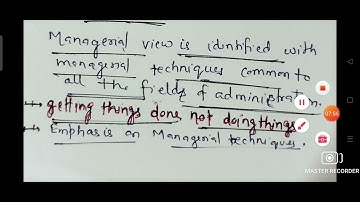 Managerial view is identified with
managerial techniques common to
all the fields of administration.
getting things done not doing things.
Emphasis on Managerial techniques.
07:56
MASTER RECORDER